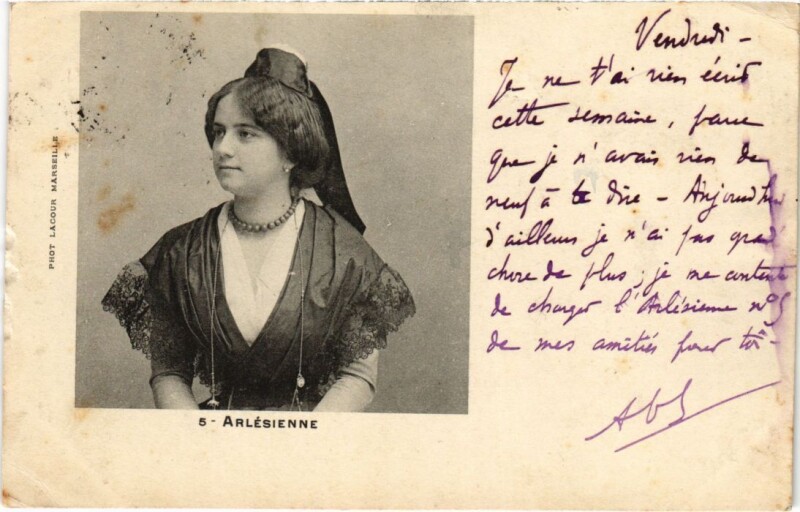 PHOT LACOUR MARSEILLE
5 - ARLÉSIENNE
Vendredi -
Je ne t'ai rien écrit
cette semaine, parce
que je n'avais rien de
neuf à te dire - Aujourd'hui
d'ailleurs je n'ai pas grand
chose de plus, je me contente
de charger l'Arlésienne nº 5
de mes amitiés pour toi -